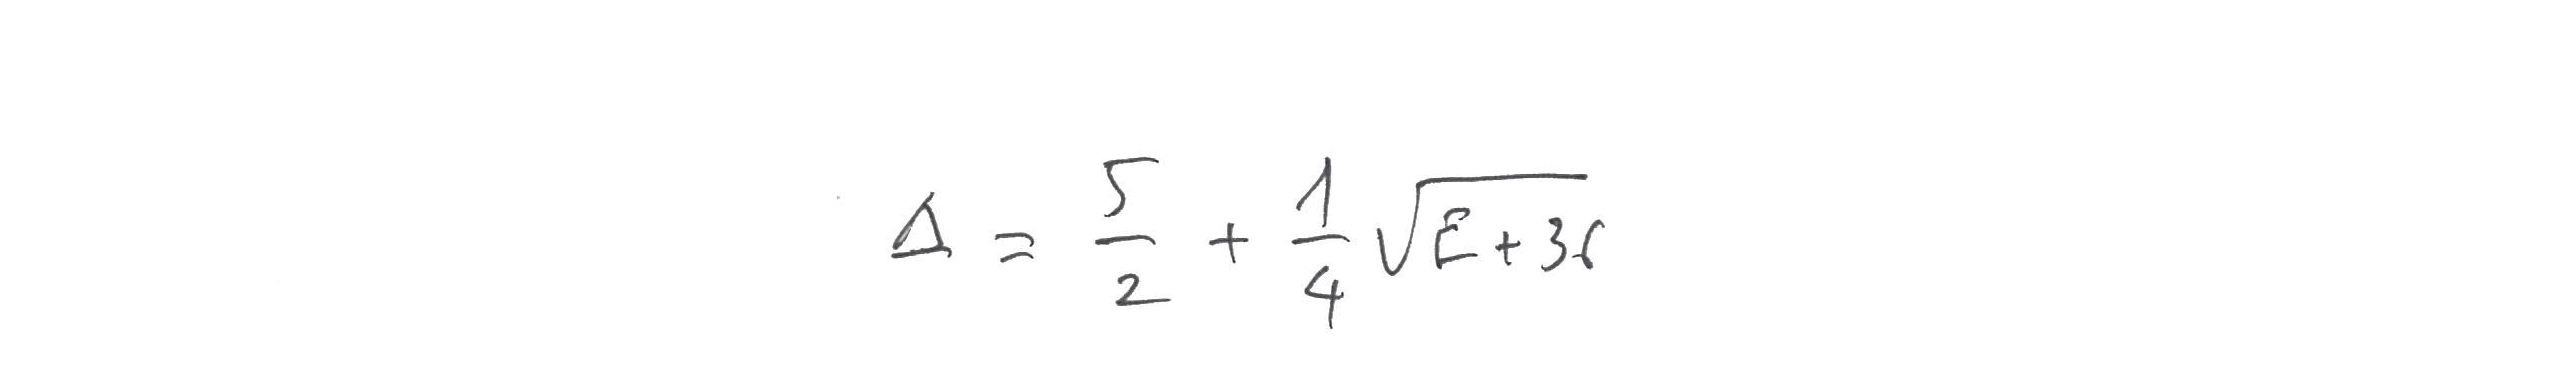 Δ = 5/2 + 1/4 √(E+36)